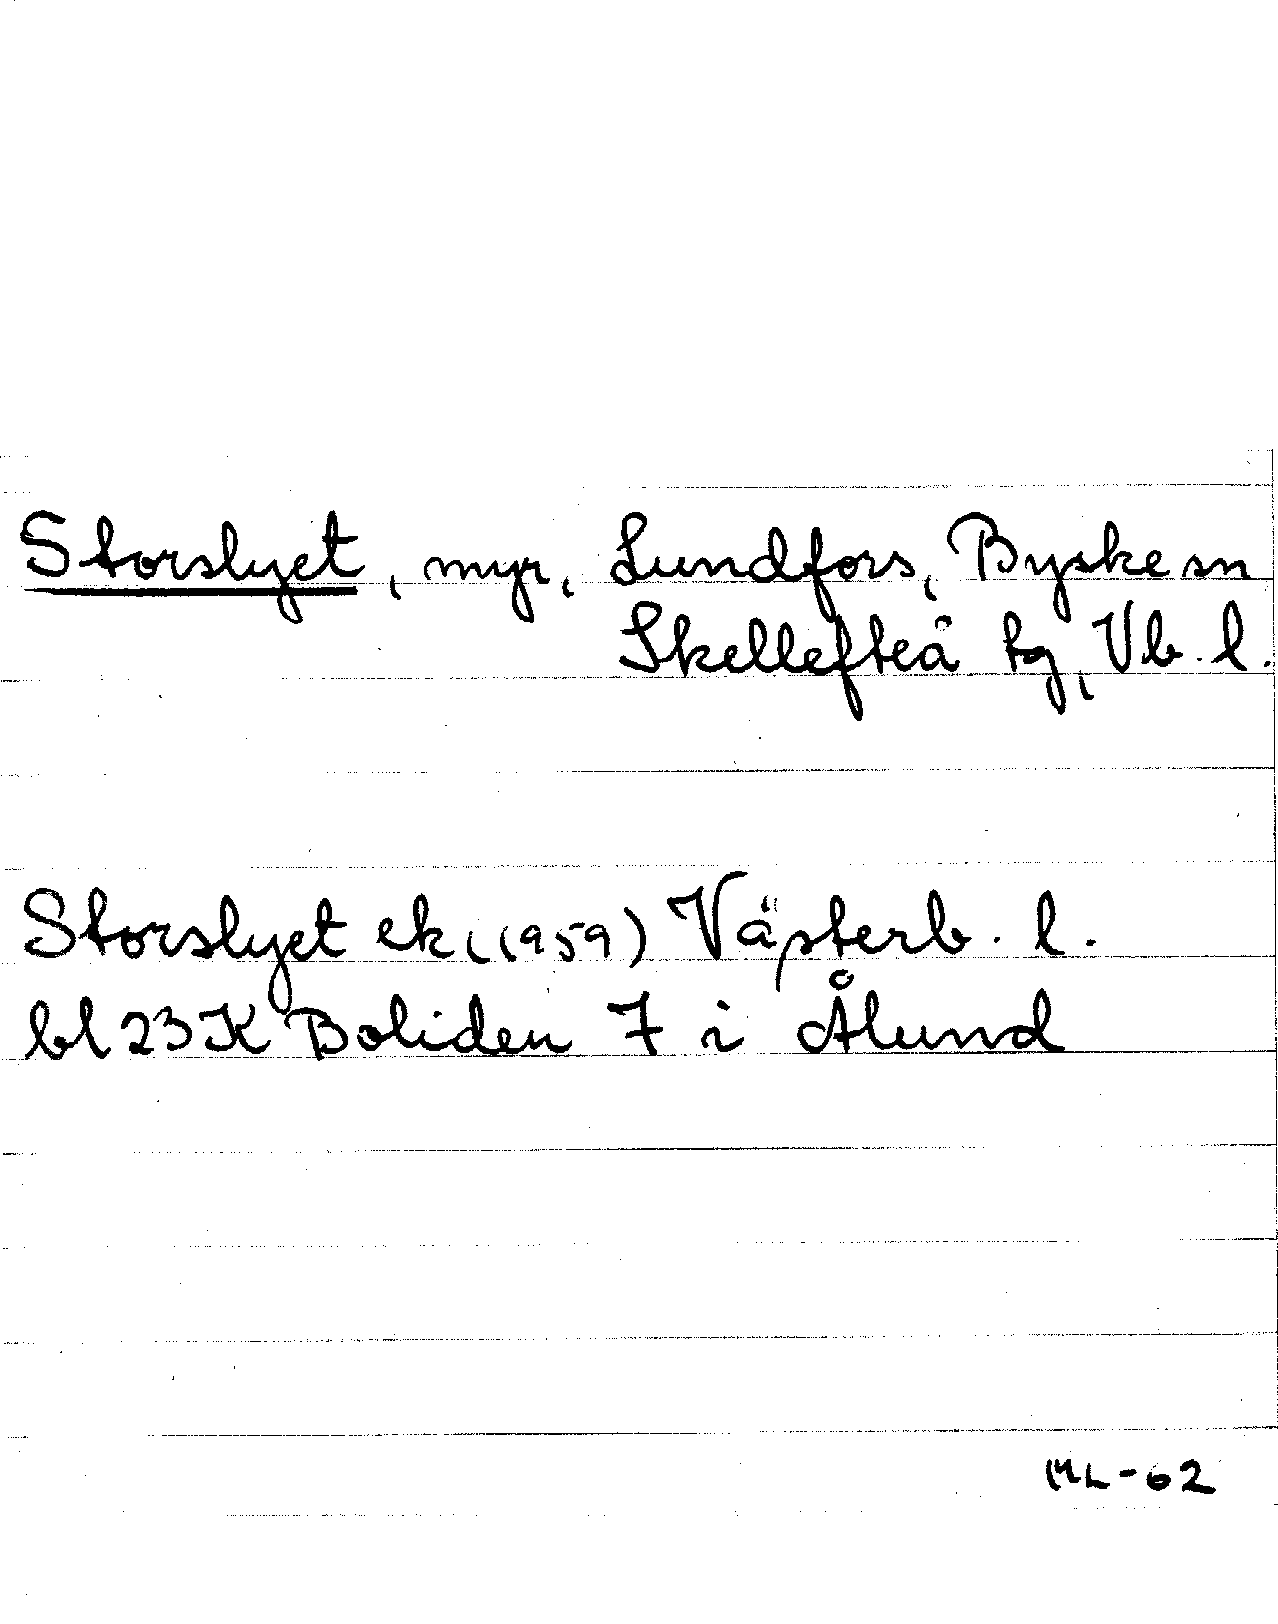 Storslyet, myr, Lundfors, Byske sn
Skellefteå tg, Vb. l.
Storslyet ek (1959) Västerb. l.
bl 23 K Boliden 7 i Ålund
ML-62